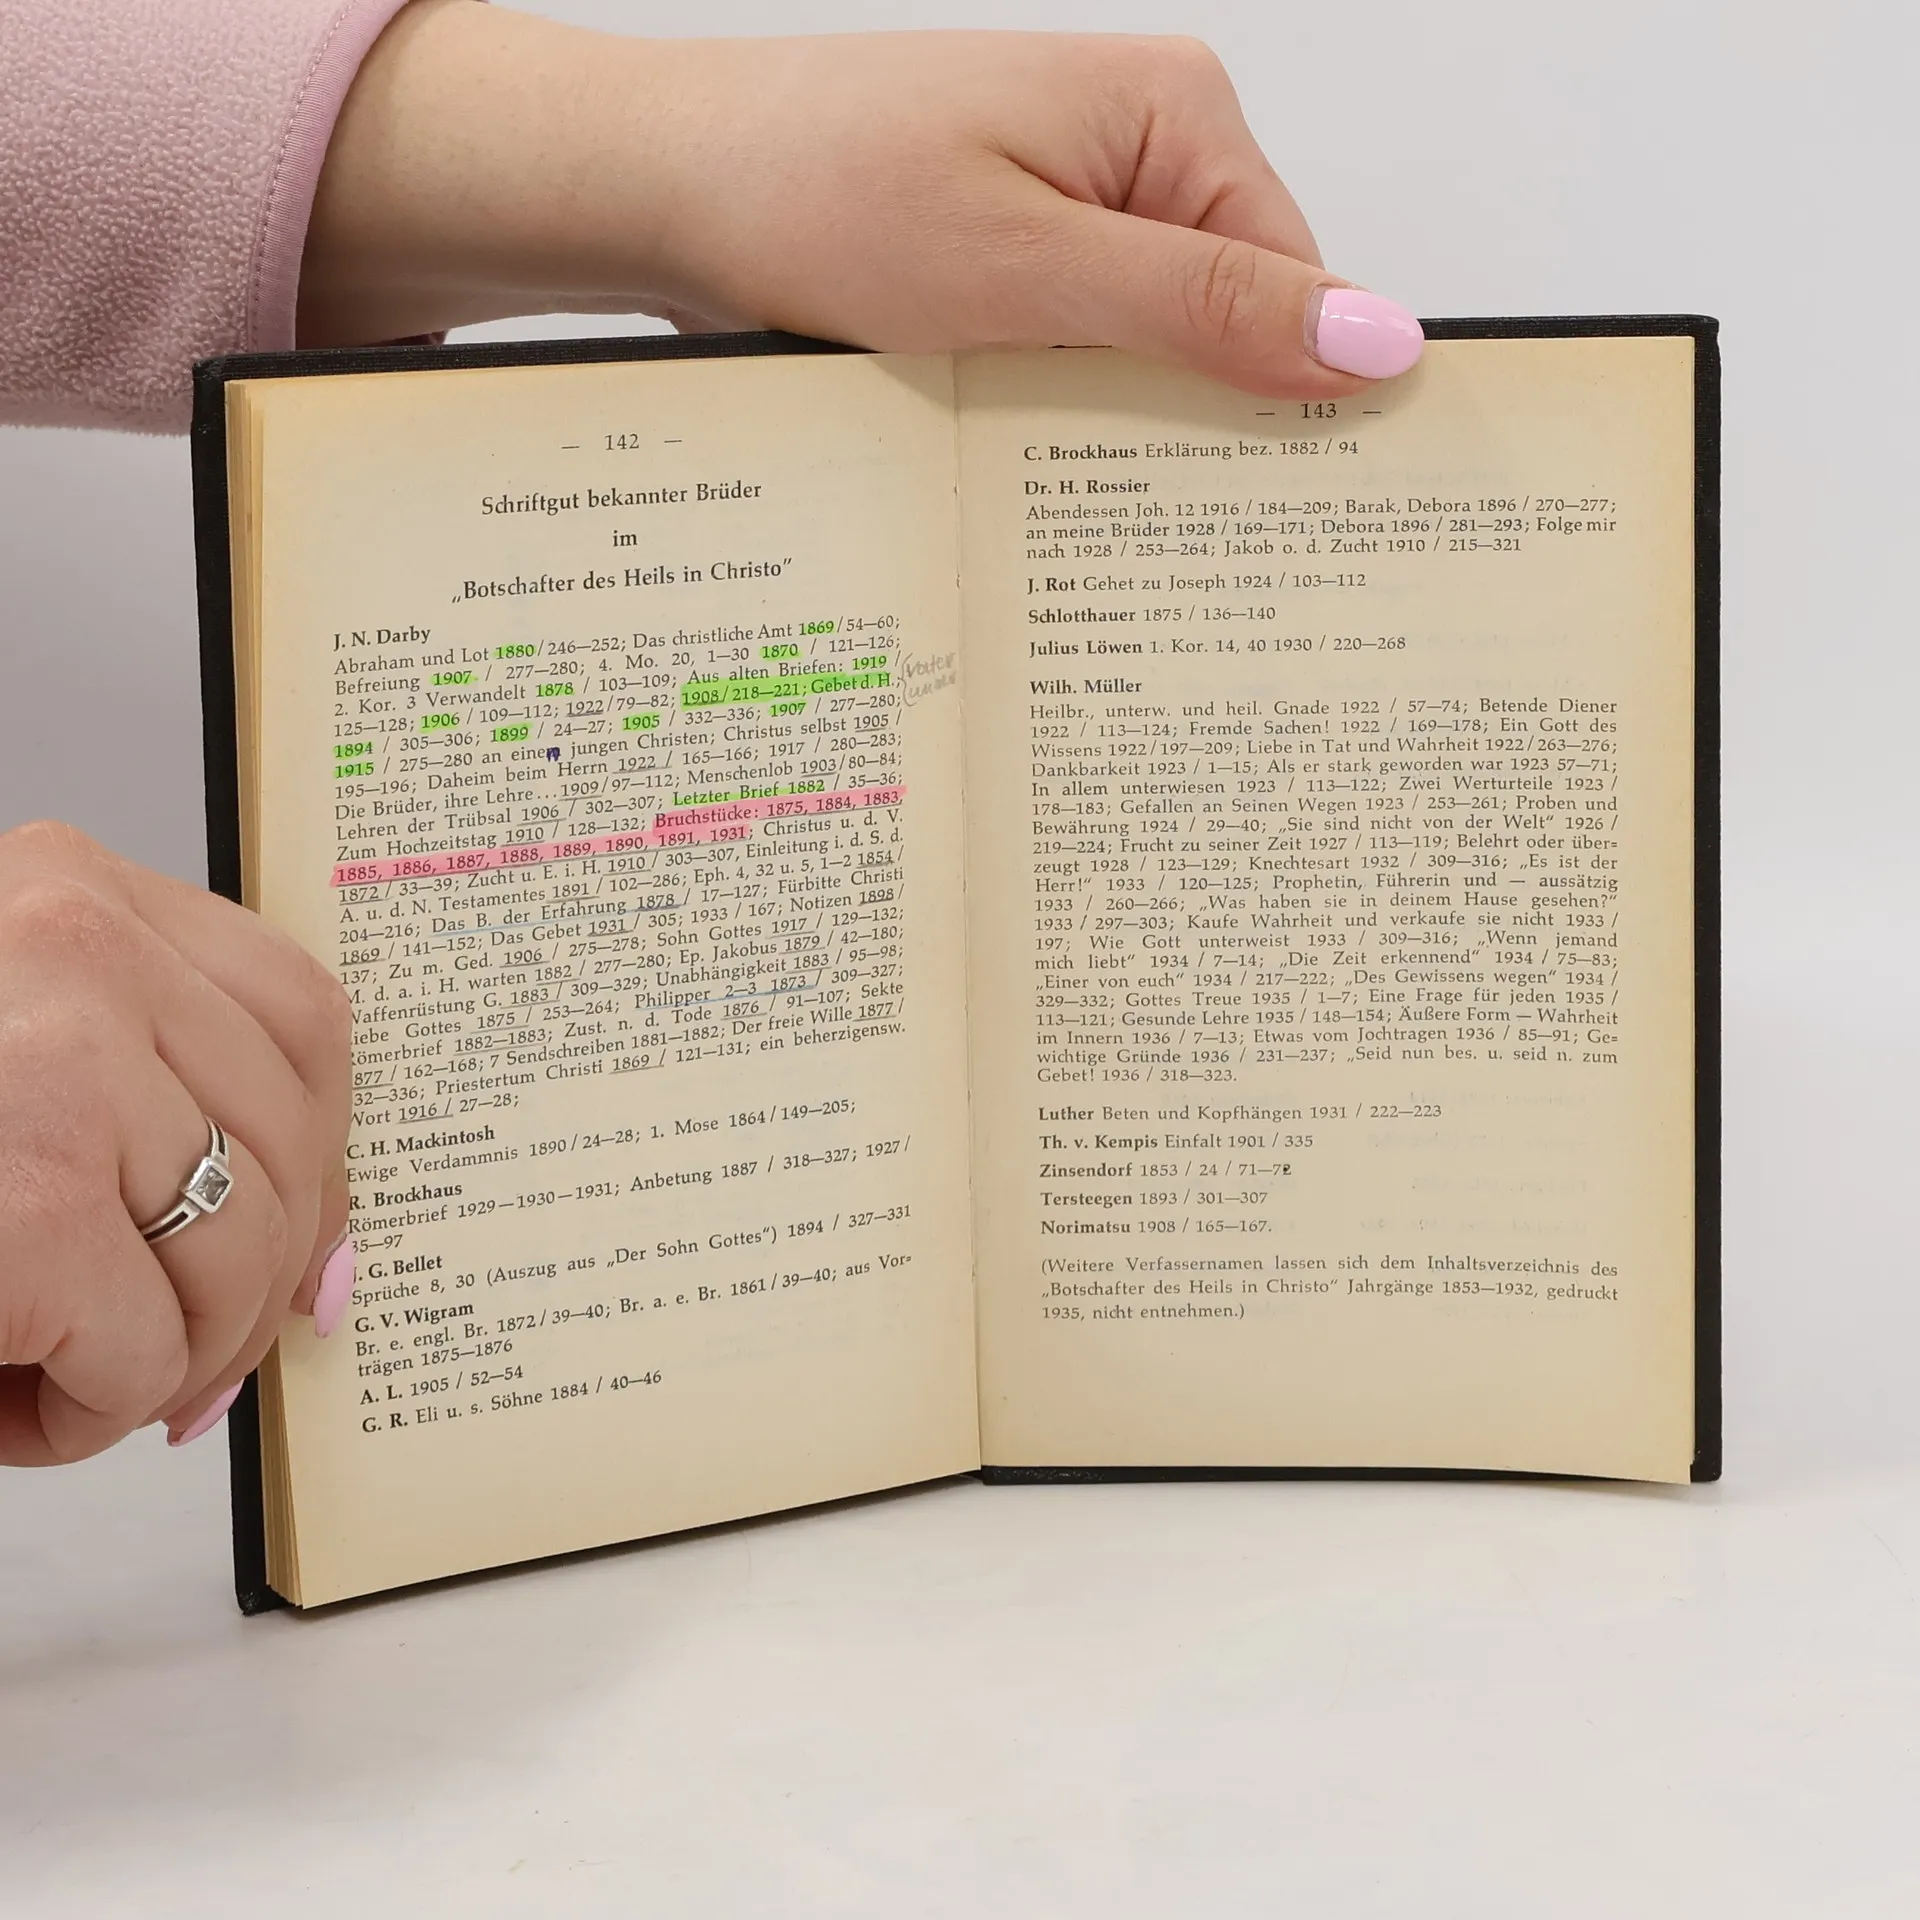 — 142 —
Schriftgut bekannter Brüder
im
„Botschafter des Heils in Christo"
J. N. Darby
Abraham und Lot 1880/246—252; Das christliche Amt 1869/54—60;
Befreiung 1907 / 277—280; 4. Mo. 20, 1—30 1870 / 121—126;
2. Kor. 3 Verwandelt 1878 / 103—109; Aus alten Briefen: 1919 /
125—128; 1906 / 109—112; 1922/79—82; 1908/218—221; Gebet d. H.;
1894 / 305—306; 1899 / 24—27; 1905 / 332—336; 1907 / 277—280;
1915 / 275—280 an einem jungen Christen; Christus selbst 1905 /
195—196; Daheim beim Herrn 1922 / 165—166; 1917 / 280—283;
Die Brüder, ihre Lehre... 1909/97—112; Menschenlob 1903/80—84;
Lehren der Trübsal 1906 / 302—307; Letzter Brief 1882 / 35—36;
Zum Hochzeitstag 1910 / 128—132; Bruchstücke: 1875, 1884, 1883,
1885, 1886, 1887, 1888, 1889, 1890, 1891, 1931; Christus u. d. V.
1872 / 33—39; Zucht u. E. i. H. 1910 / 303—307, Einleitung i. d. S. d.
A. u. d. N. Testamentes 1891 / 102—286; Eph. 4, 32 u. 5, 1—2 1854 /
204—216; Das B. der Erfahrung 1878 / 17—127; Fürbitte Christi
1869 / 141—152; Das Gebet 1931 / 305; 1933 / 167; Notizen 1898 /
137; Zu m. Ged. 1906 / 275—278; Sohn Gottes 1917 / 129—132;
M. d. a. i. H. warten 1882 / 277—280; Ep. Jakobus 1879 / 42—180;
Waffenrüstung G. 1883 / 309—329; Unabhängigkeit 1883 / 95—98;
iebe Gottes 1875 / 253—264; Philipper 2—3 1873 / 309—327;
ömerbrief 1882—1883; Zust. n. d. Tode 1876 / 91—107; Sekte
877 / 162—168; 7 Sendschreiben 1881—1882; Der freie Wille 1877 /
32—336; Priestertum Christi 1869 / 121—131; ein beherzigensw.
Wort 1916 / 27—28;
C. H. Mackintosh
Ewige Verdammnis 1890/24—28; 1. Mose 1864/149—205;
R. Brockhaus
Römerbrief 1929—1930—1931; Anbetung 1887 / 318—327; 1927 /
35—97
J. G. Bellet
Sprüche 8, 30 (Auszug aus „Der Sohn Gottes") 1894 / 327—331
G. V. Wigram
Br. e. engl. Br. 1872/39—40; Br. a. e. Br. 1861/39—40; aus Vor=
trägen 1875—1876
A. L. 1905 / 52—54
G. R. Eli u. s. Söhne 1884 / 40—46
— 143 —
C. Brockhaus Erklärung bez. 1882 / 94
Dr. H. Rossier
Abendessen Joh. 12 1916 / 184—209; Barak, Debora 1896 / 270—277;
an meine Brüder 1928 / 169—171; Debora 1896 / 281—293; Folge mir
nach 1928 / 253—264; Jakob o. d. Zucht 1910 / 215—321
J. Rot Gehet zu Joseph 1924 / 103—112
Schlotthauer 1875 / 136—140
Julius Löwen 1. Kor. 14, 40 1930 / 220—268
Wilh. Müller
Heilbr., unterw. und heil. Gnade 1922 / 57—74; Betende Diener
1922 / 113—124; Fremde Sachen! 1922 / 169—178; Ein Gott des
Wissens 1922/197—209; Liebe in Tat und Wahrheit 1922/263—276;
Dankbarkeit 1923 / 1—15; Als er stark geworden war 1923 57—71;
In allem unterwiesen 1923 / 113—122; Zwei Werturteile 1923 /
178—183; Gefallen an Seinen Wegen 1923 / 253—261; Proben und
Bewährung 1924 / 29—40; „Sie sind nicht von der Welt" 1926 /
219—224; Frucht zu seiner Zeit 1927 / 113—119; Belehrt oder über=
zeugt 1928 / 123—129; Knechtesart 1932 / 309—316; „Es ist der
Herr!" 1933 / 120—125; Prophetin, Führerin und — aussätzig
1933 / 260—266; „Was haben sie in deinem Hause gesehen?"
1933 / 297—303; Kaufe Wahrheit und verkaufe sie nicht 1933 /
197; Wie Gott unterweist 1933 / 309—316; „Wenn jemand
mich liebt" 1934 / 7—14; „Die Zeit erkennend" 1934 / 75—83;
„Einer von euch" 1934 / 217—222; „Des Gewissens wegen" 1934 /
329—332; Gottes Treue 1935 / 1—7; Eine Frage für jeden 1935 /
113—121; Gesunde Lehre 1935 / 148—154; Äußere Form — Wahrheit
im Innern 1936 / 7—13; Etwas vom Jochtragen 1936 / 85—91; Ge=
wichtige Gründe 1936 / 231—237; „Seid nun bes. u. seid n. zum
Gebet! 1936 / 318—323.
Luther Beten und Kopfhängen 1931 / 222—223
Th. v. Kempis Einfalt 1901 / 335
Zinsendorf 1853 / 24 / 71—72
Tersteegen 1893 / 301—307
Norimatsu 1908 / 165—167.
(Weitere Verfassernamen lassen sich dem Inhaltsverzeichnis des
„Botschafter des Heils in Christo" Jahrgänge 1853—1932, gedruckt
1935, nicht entnehmen.)